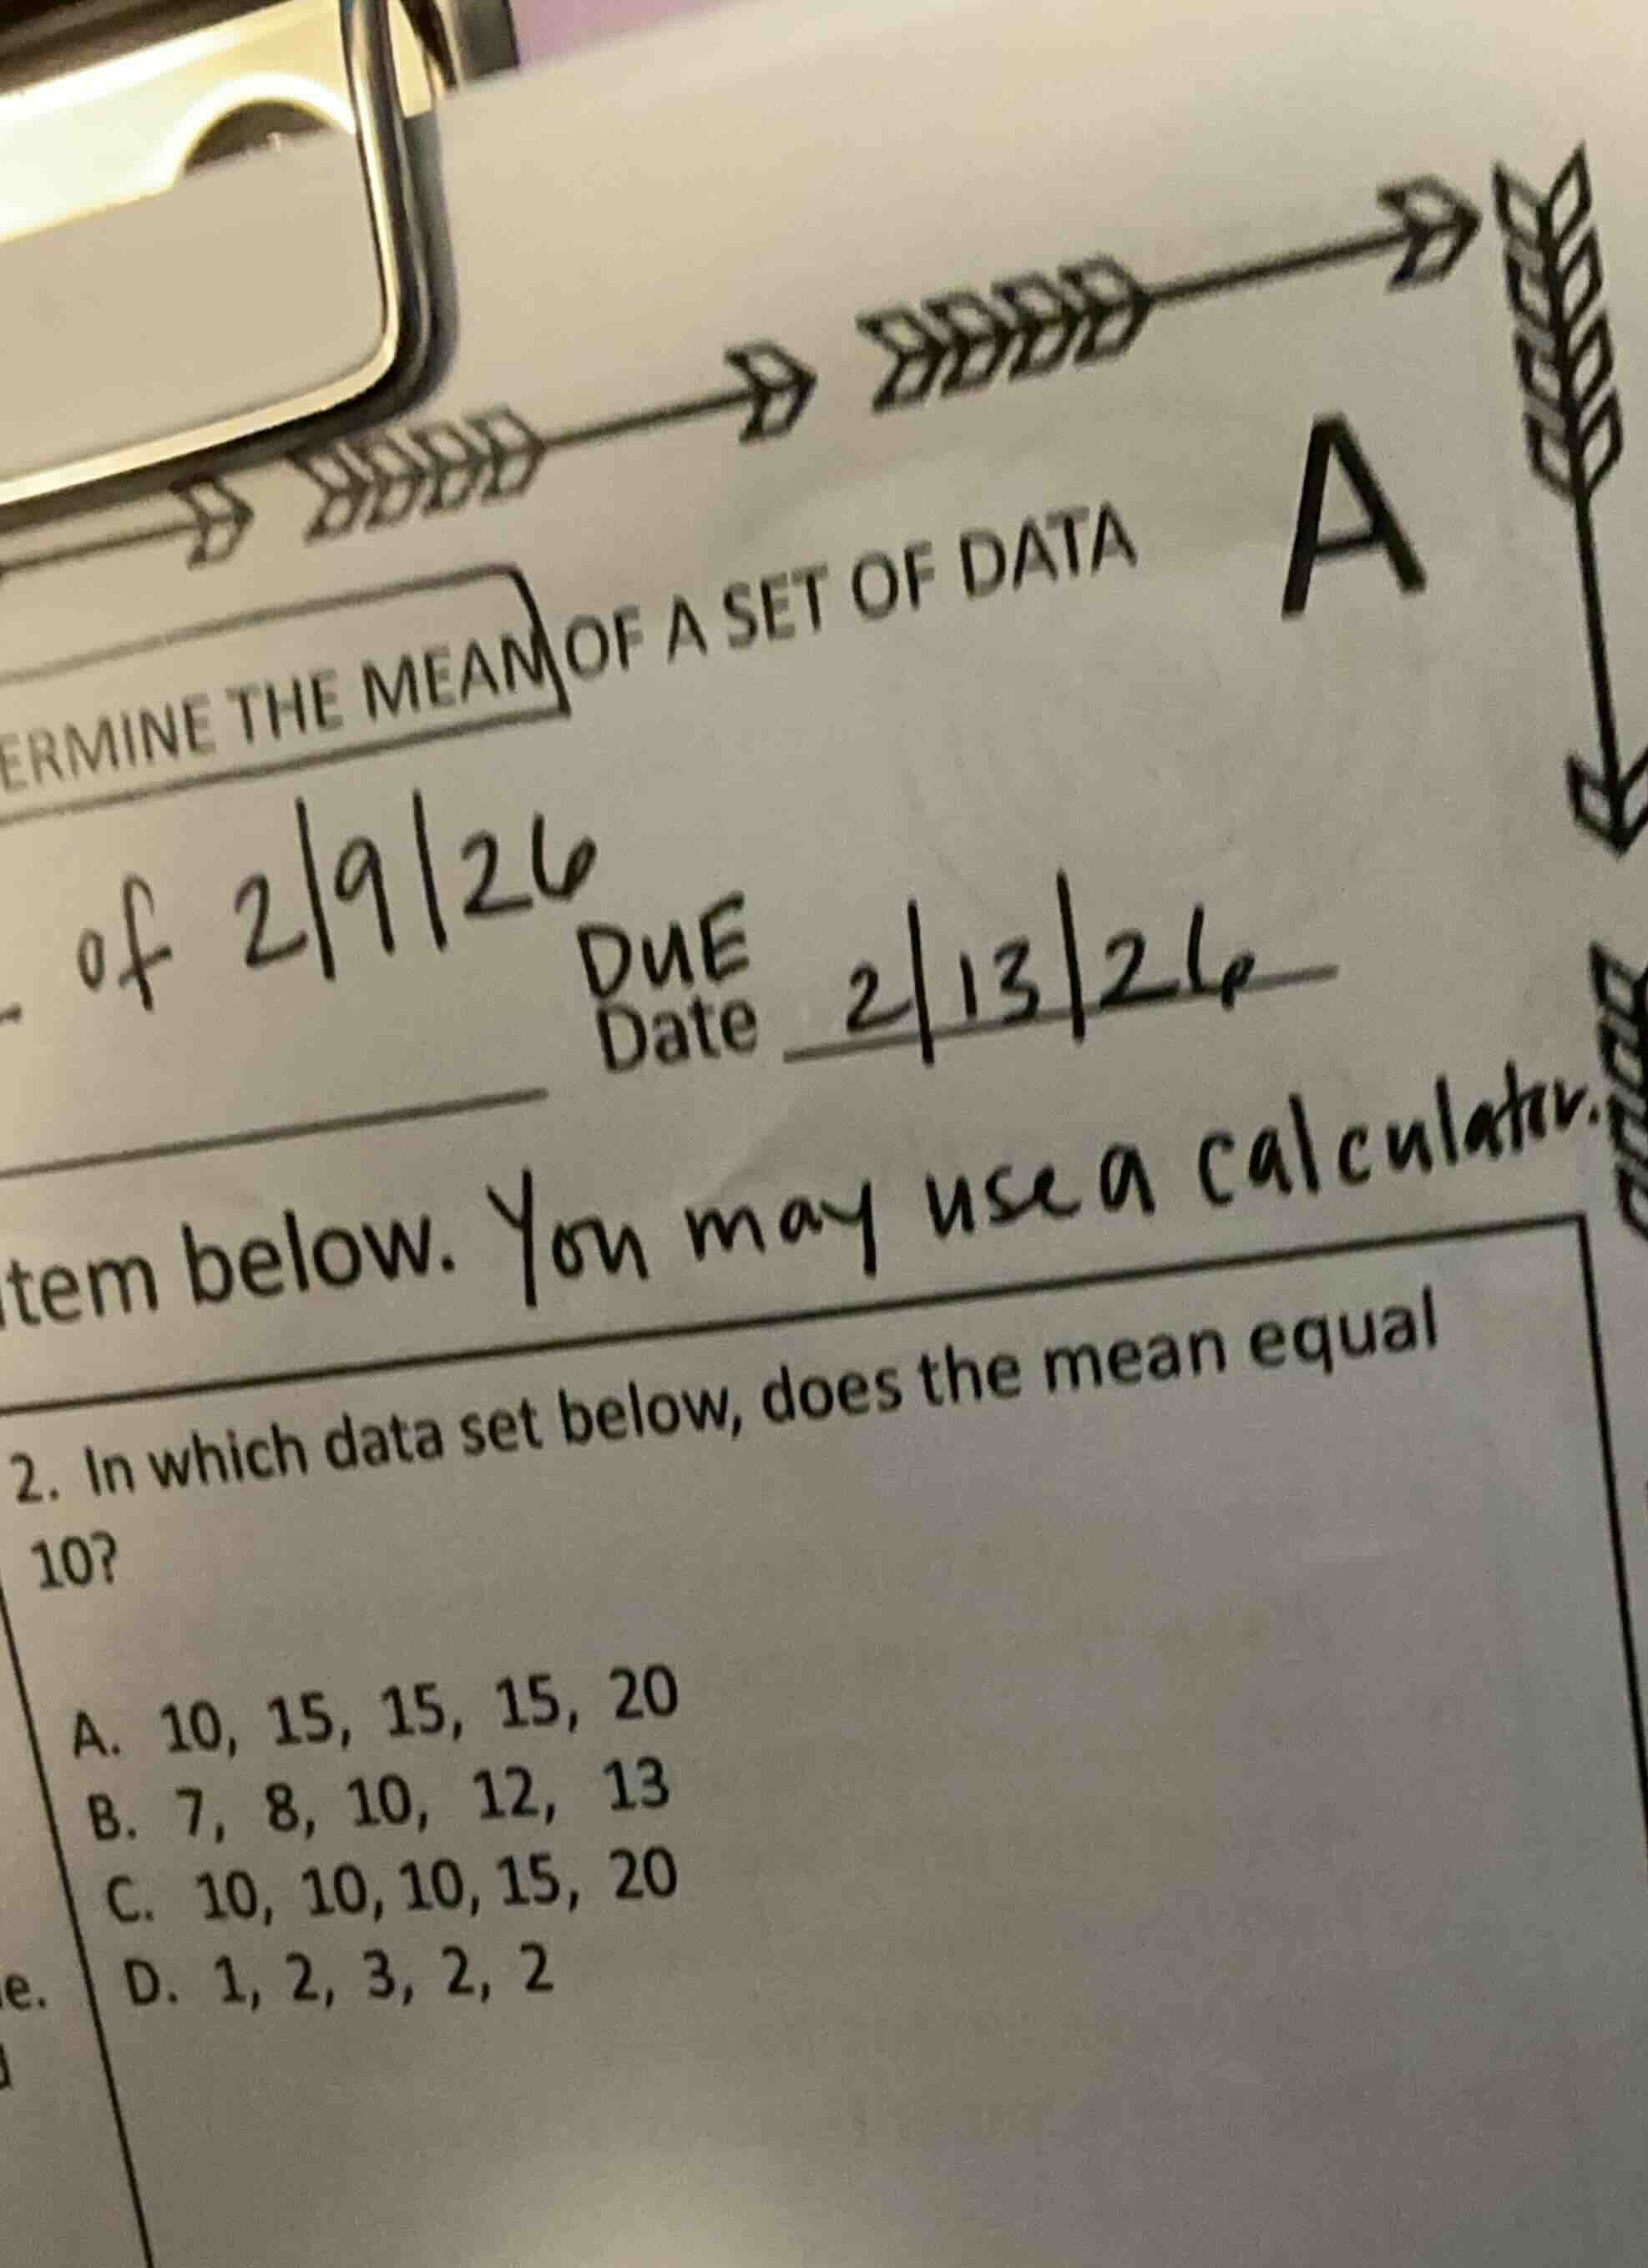 ERMINE THE MEAN OF A SET OF DATA
A
of 2/9/26
DUE
Date 2/13/26
tem below. You may use a calculator.
2. In which data set below, does the mean equal
10?
A. 10, 15, 15, 15, 20
B. 7, 8, 10, 12, 13
C. 10, 10, 10, 15, 20
D. 1, 2, 3, 2, 2
e.